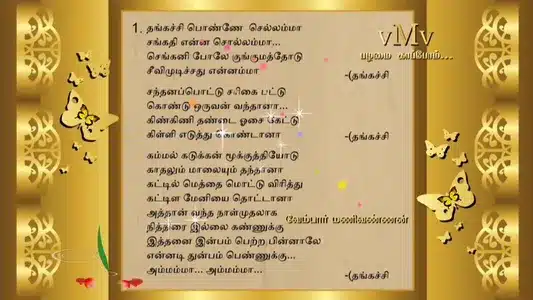 vMv
பழமை காப்போம்...
1. தங்கச்சி பொண்ணே செல்லம்மா
சங்கதி என்ன சொல்லம்மா...
செங்கனி போலே குங்குமத்தோடு
சீவிமுடிச்சது என்னம்மா -(தங்கச்சி
சந்தனப்பொட்டு சரிகை பட்டு
கொண்டு ஒருவன் வந்தானா...
கிண்கிணி தண்டை ஓசை கேட்டு
கிள்ளி எடுத்து கொண்டானா -(தங்கச்சி
கம்மல் கடுக்கன் மூக்குத்தியோடு
காதலும் மாலையும் தந்தானா
கட்டில் மெத்தை மொட்டு விரித்து
கட்டிள மேனியை தொட்டானா
அத்தான் வந்த நாள்முதலாக
நித்திரை இல்லை கண்ணுக்கு
இத்தனை இன்பம் பெற்ற பின்னாலே
என்னடி துன்பம் பெண்ணுக்கு...
அம்மம்மா... அம்மம்மா... -(தங்கச்சி
வேம்பார் மணிவண்ணன்